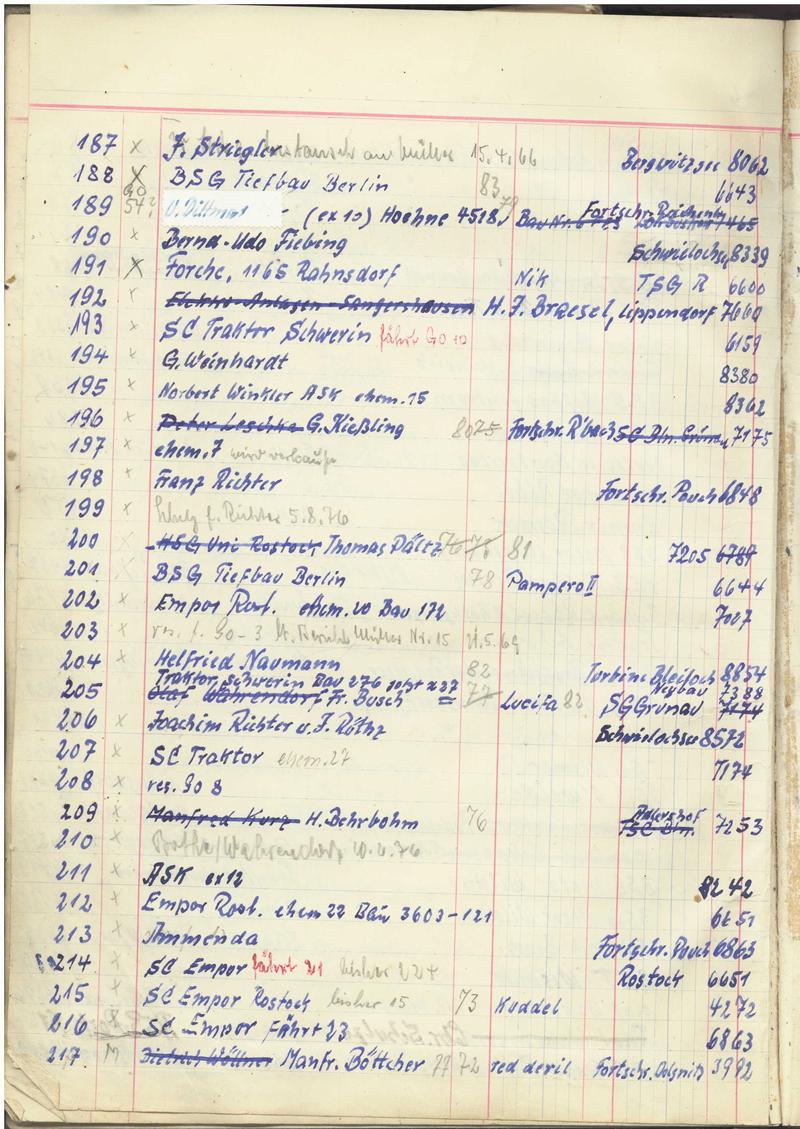 187 x J. Striegler 15.4.66 Bergwitzsee 8062
188 x BSG Tiefbau Berlin 83 6643
189 54? U. Dittmar - (ex 10) Hoehne 4518 Bau Nr. Fortschr. 7465
190 x Bernd-Udo Fiebing Schwielochsee 8339
191 x Forche, 1165 Rahnsdorf Nik TSG R 6600
192 x Elektro-Anlagen-Sangershausen H.J. Braesel, Lippendorf 7660
193 x SC Traktor Schwerin fährt GO 10 6159
194 x G. Weinhardt 8380
195 x Norbert Winkler ASK ehem. 15 8362
196 x Peter Leschke G. Kießling 8025 Fortschr. R'bach SC Bln. Grünau 7175
197 x ehem. 7 wird verkauft
198 x Franz Richter Fortschr. Pouch 6848
199 x f. Richter 5.8.76
200 x HSG Uni Rostock Thomas Pältz 76 78 81 7205 6787
201 BSG Tiefbau Berlin 78 Pampero II 6644
202 x Empor Rost. ehem. 20 Bau 172 7027
203 x res. f. 90-3 Müller Nr. 15 21.5.69
204 x Helfried Naumann 82 Turbine Bleiloch 8854
Traktor Schwerin Bau 276 jetzt x 27 Neubau 7388
205 Olaf Währendorf Fr. Busch 77 Lucifa 82 SG Grünau 7174
206 x Joachim Richter u. F. Röthz Schwielochsee 8572
207 x SC Traktor ehem. 27 7174
208 x res. 90 8
209 x Manfred Kurz H. Behrbohm 76 Adlershof TSC Bln. 7253
210 x Bothe/Wahrendorf 10.4.76
211 x ASK ex 12 8242
212 x Empor Rost. ehem 22 Bau 3603-121 6651
213 x Ammenda Fortschr. Pouch 6863
214 x SC Empor fährt 21 bisher 224 Rostock 6651
215 x SC Empor Rostock bisher 15 73 Kuddel 4272
216 SC Empor fährt 23 6863
217 M Dietrich Wöllner Manfr. Böttcher 77 72 red devil Fortschr. Oelsnitz 3992